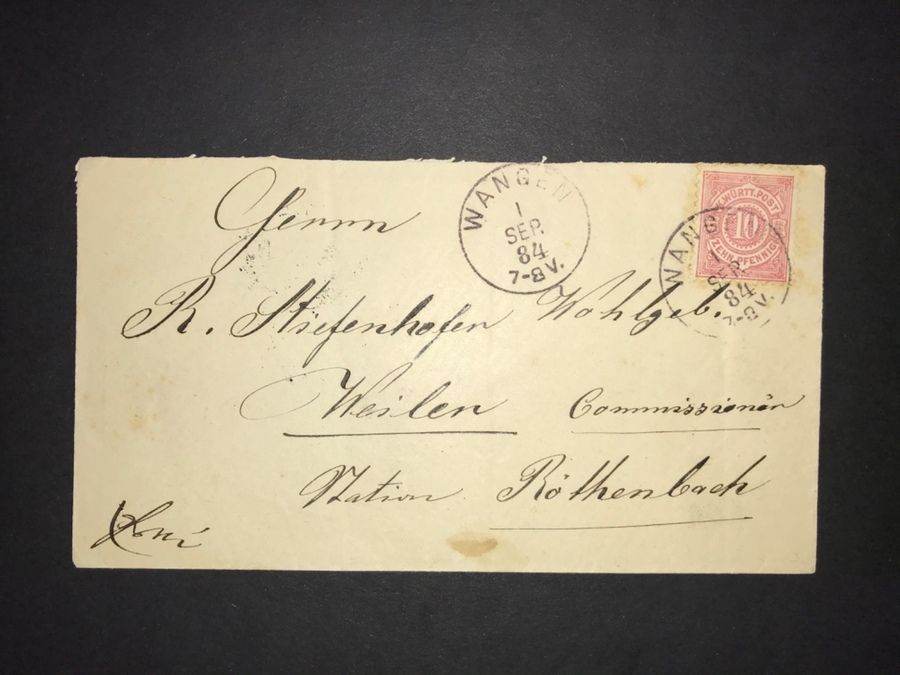 WANGEN
1
SEP.
84
7-8 V.
K. WÜRTT. POST
10
ZEHN PFENNIG
WANG
1
SEP.
84
7-8 V.
Herrn
R. Stiefenhofen Wohlgeb.
Weilen Commissionär
Station Röthenbach